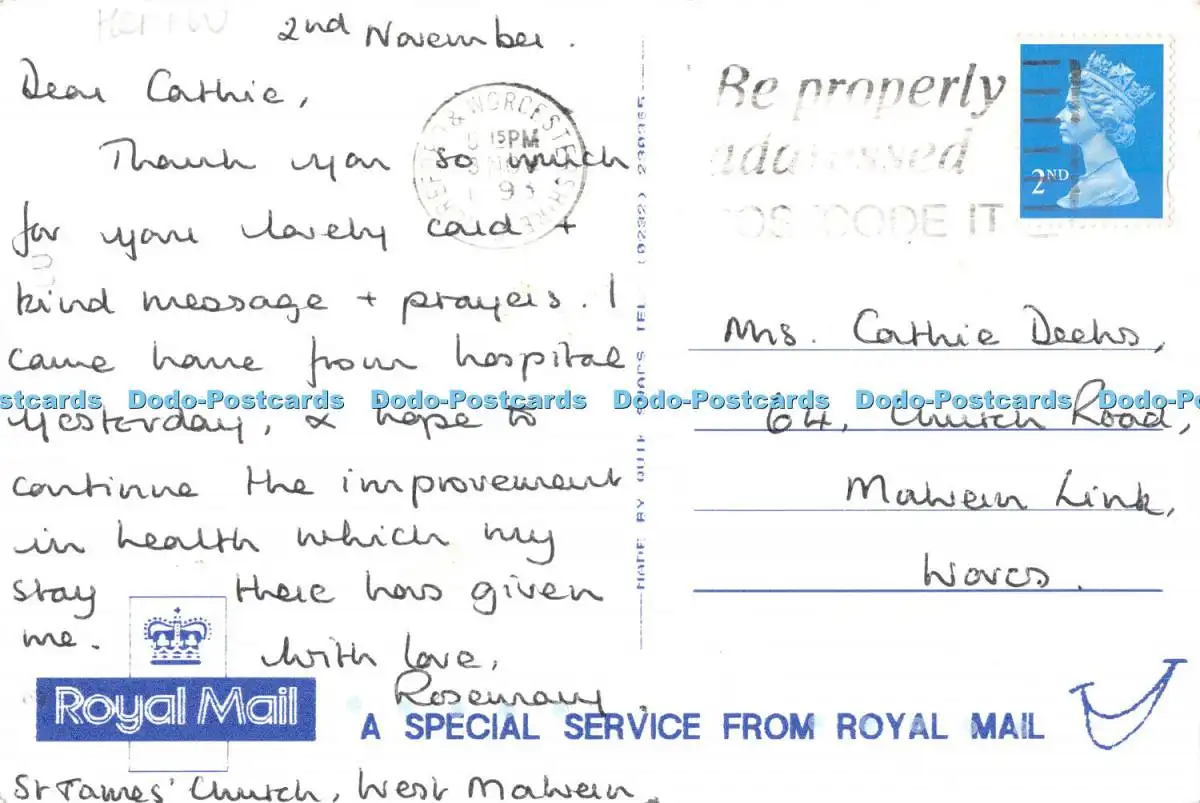 2nd November.
Dear Cathie,
Thank you so much
for your lovely card +
kind message + prayers. I
came home from hospital
yesterday, & hope to
continue the improvement
in health which my
stay there has given
me.
With love,
Rosemary.
St James' Church, West Malvern.
Royal Mail
A SPECIAL SERVICE FROM ROYAL MAIL
& WORCESTERSHIRE
15PM
Be properly
addressed
POSTCODE IT
2ND
Mrs. Cathie Deeks,
64, Church Road,
Malvern Link,
Worcs.
MADE BY TEL (0232) 230365
Dodo-Postcards Dodo-Postcards Dodo-Postcards Dodo-Postcards